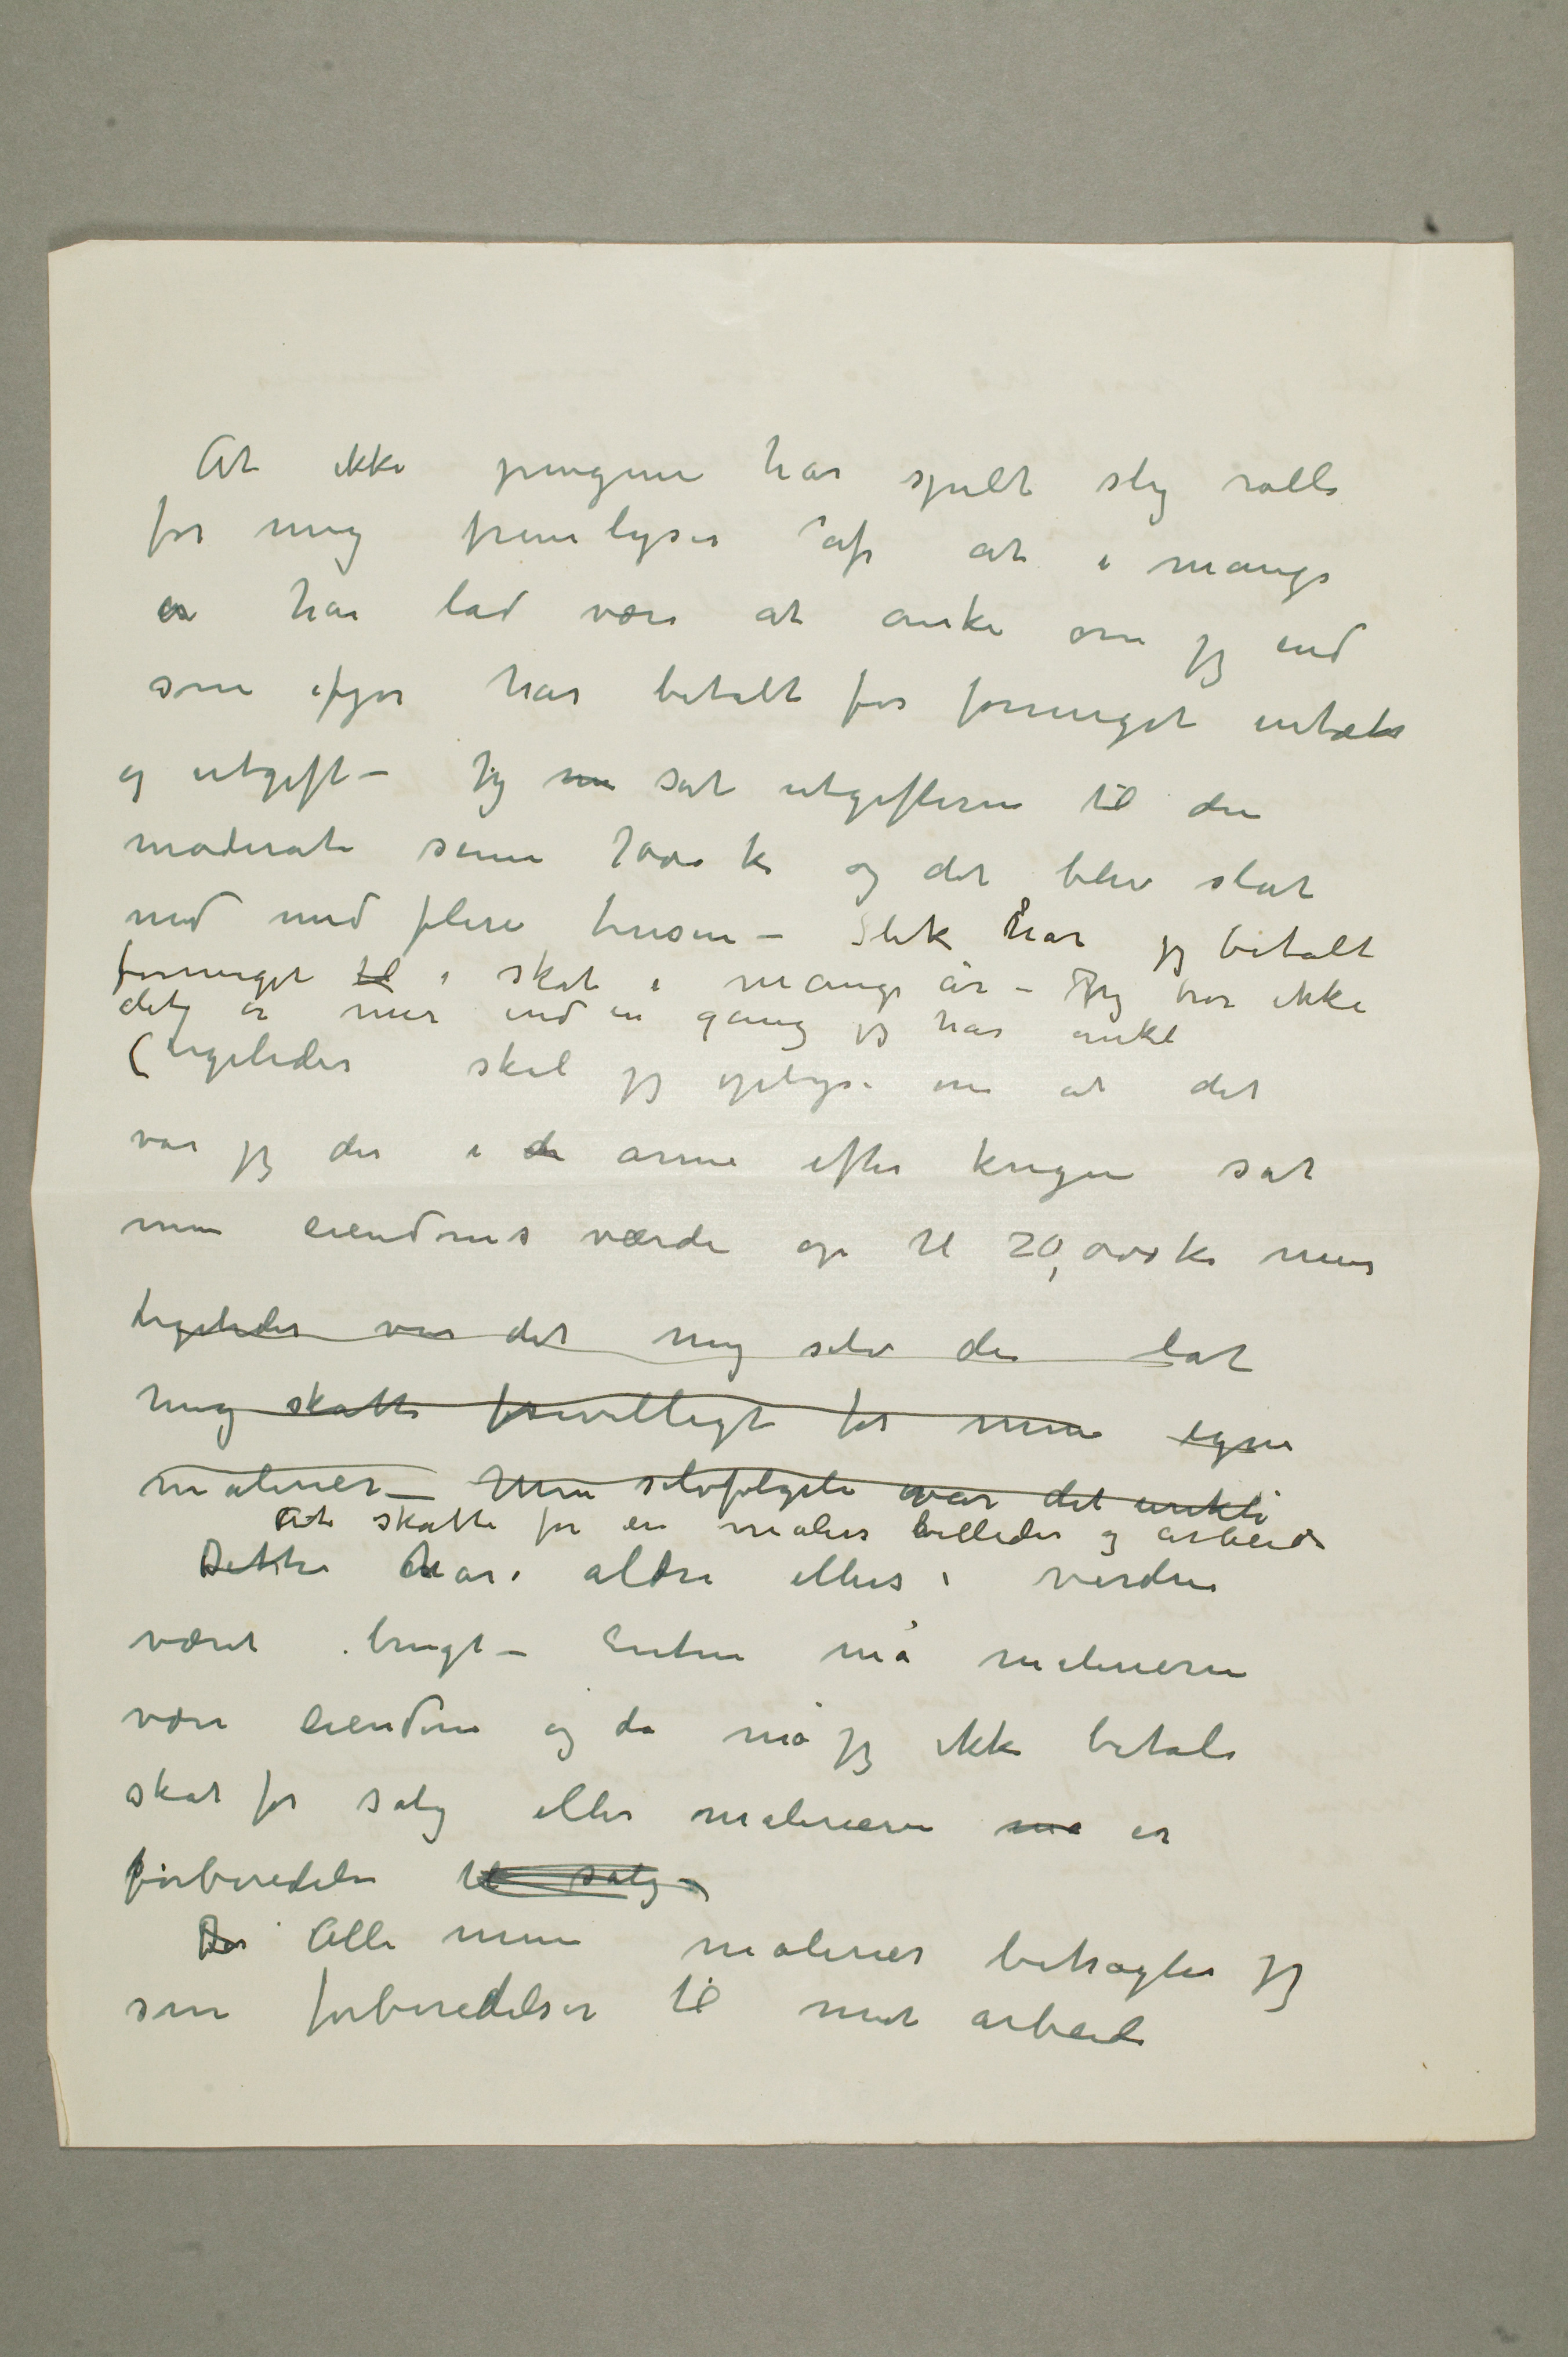 At ikke pengene har spilt slig rolle
for mig fremlyser af at i mange
år har lad være at anke om jeg end
som ifjor har betalt for formeget intækt
og utgift – Jeg sat utgifterne til den
moderate sum 7000 k og det blev slåt
ned med flere tusen – Slik har jeg betalt
formeget til i skat i mange år – Jeg tror ikke
det er mer end en gang jeg har anket
(Ligeledes skal jeg oplyse om at det
var jeg der i de årene efter krigen sat
min eiendoms værdi op til 20,000 kr mer
Ligeledes var det mig selv der lot
mig skatte frivilligt for mine egne
malerier – Men selvfølgeli var det urikti
At skatte for en malers billeder og arbeide
Dette har aldri ellers i verden
været brugt – Enten må malerierne
være eiendom og da må jeg ikke betale
skat for salg eller malerierne må er
forberedelse til salg –
Da Alle mine malerier betragter jeg
som forberedelser til mit arbeide